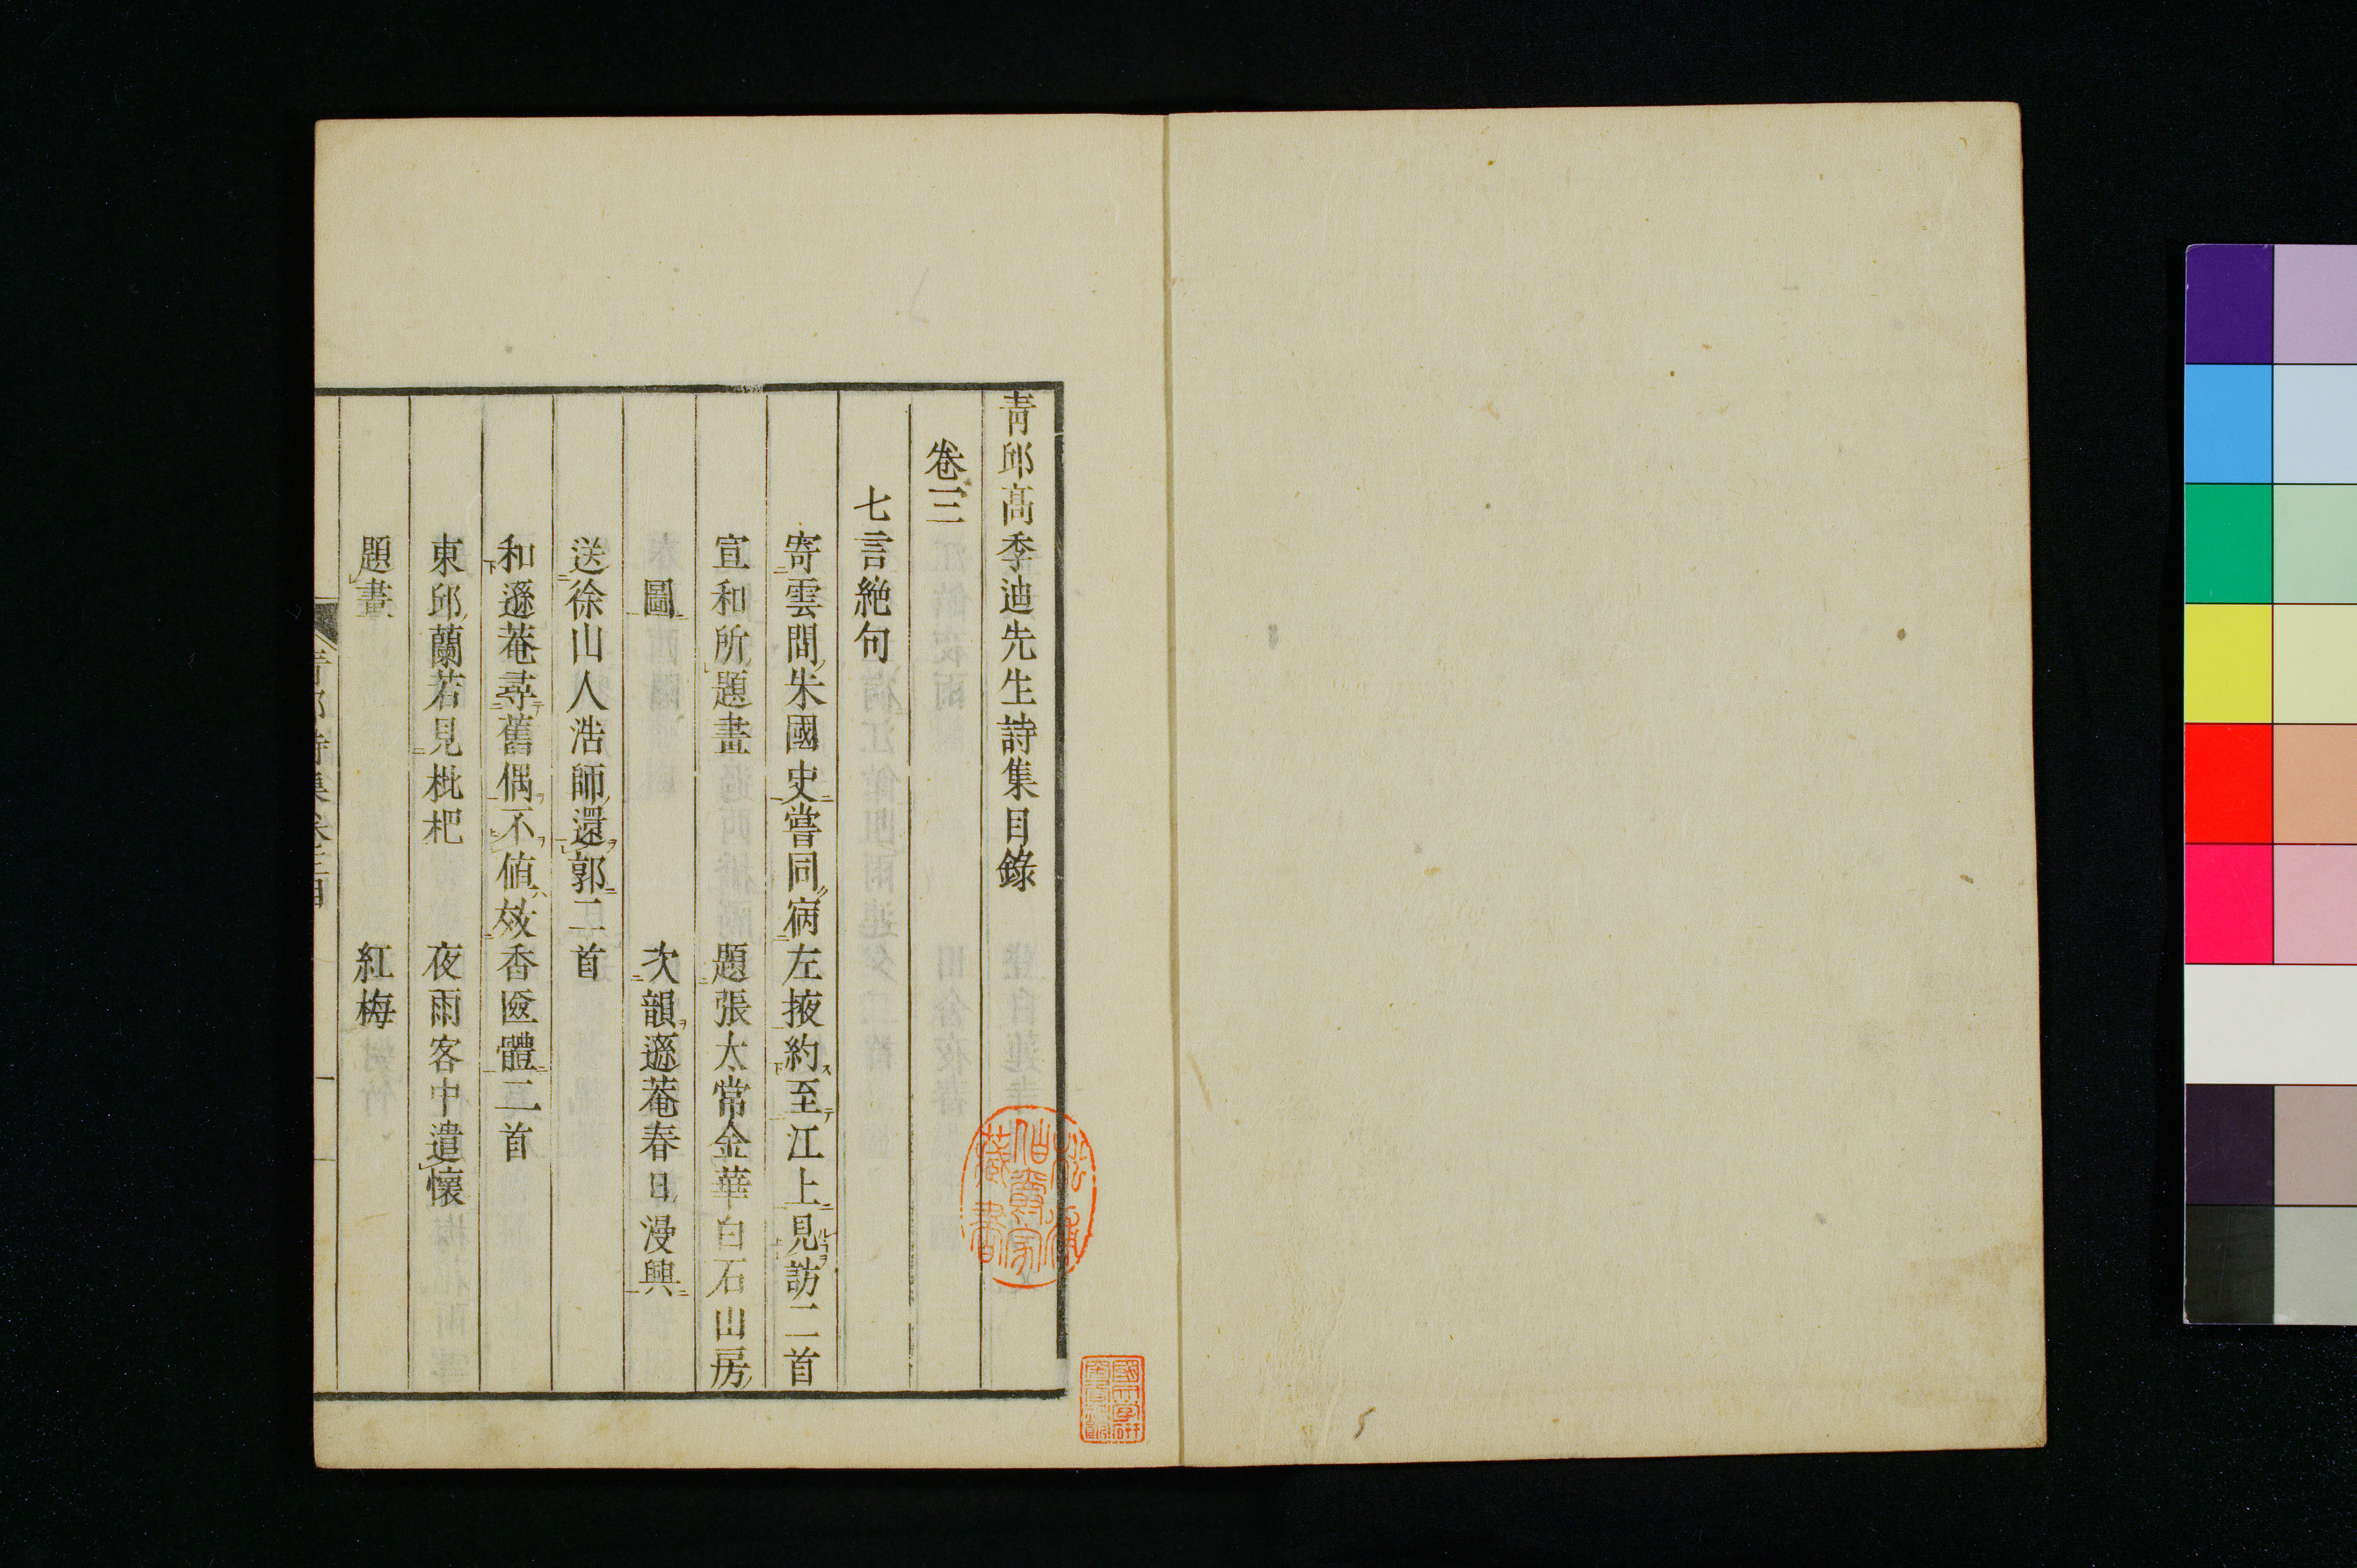 青邱高季迪先生詩集目錄
卷三
七言絶句
寄雲間朱國史嘗同病左掖約至江上見訪二首
宣和所題畫　題張太常金華白石山房
圖　次韻遜菴春日漫興
送徐山人浩師還郭二首
和遜菴尋舊偶不値效香匳體二首
東邱蘭若見枇杷　夜雨客中遣懷
題畫　紅梅